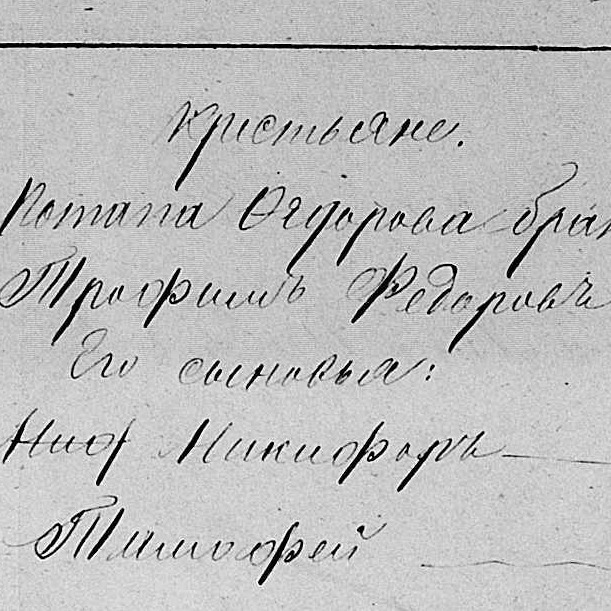 Крестьяне.
Потапа Ѳедорова брат
Трофимъ Федоровъ
Его сыновья:
Никифоръ
Тимофей